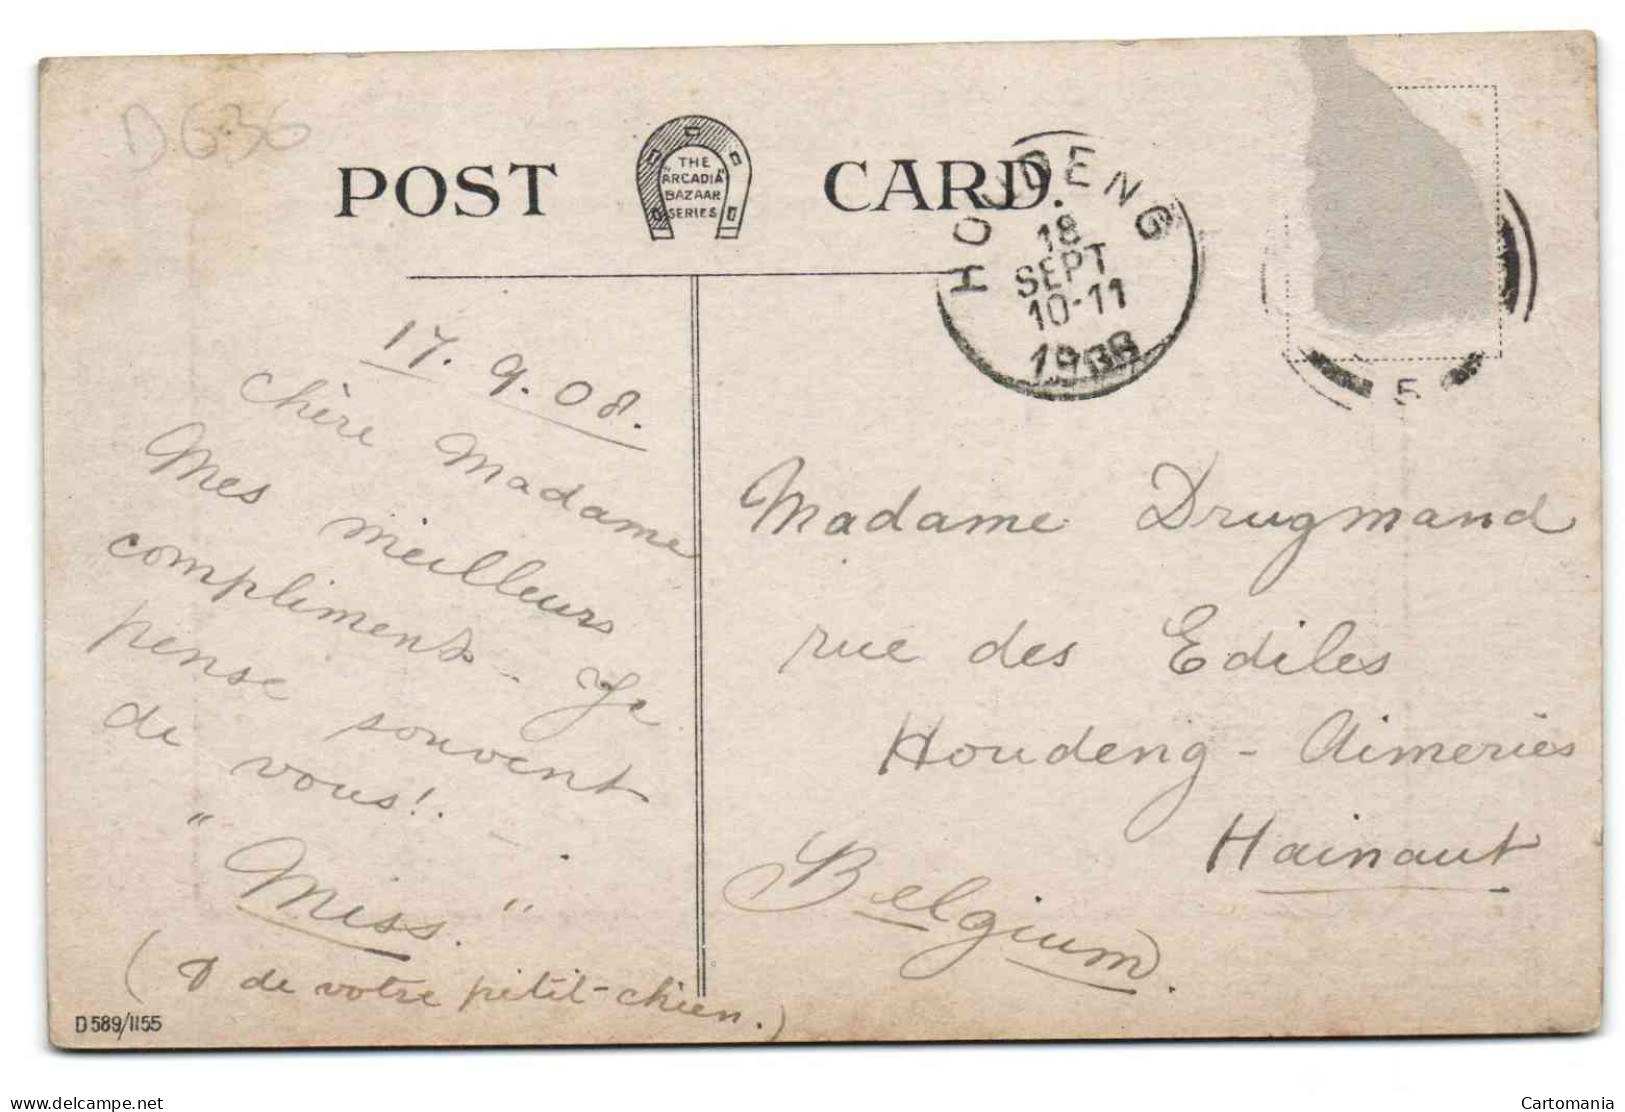 D636
POST CARD.
"THE
ARCADIA"
BAZAAR
SERIES
HOUDENG
18
SEPT
10-11
1908
5
17.9.08.
Chère Madame
Mes meilleurs
compliments - Je
pense souvent
de vous!
"Miss."
( & de votre petit-chien.)
D589/1155
Madame Drugmand
rue des Ediles
Houdeng-Aimeries
Hainaut
Belgium.
delcampe.net
Cartomania